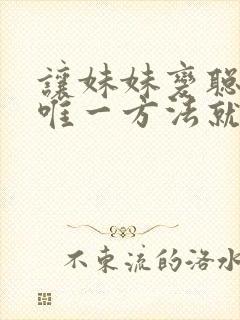 讓妹妹變聰
唯一方法就
不東流的洛水